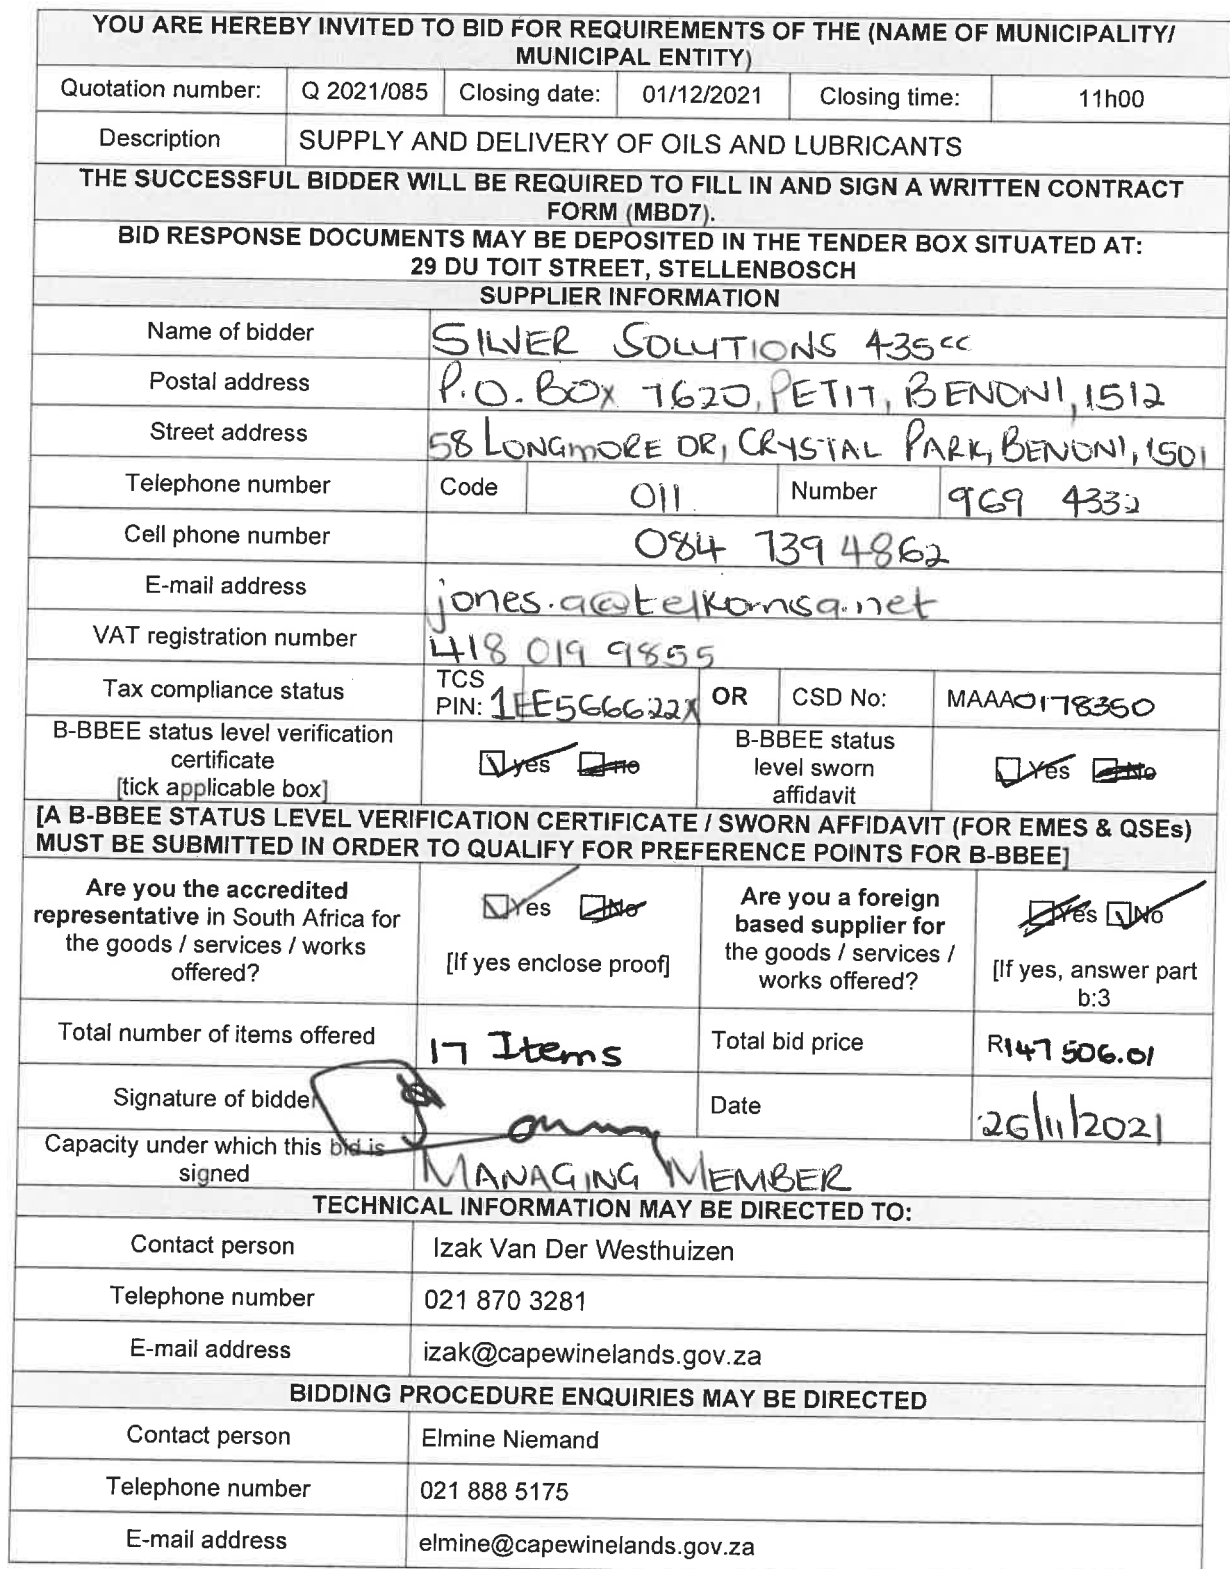 YOU ARE HEREBY INVITED TO BID FOR REQUIREMENTS OF THE (NAME OF MUNICIPALITY/
MUNICIPAL ENTITY)
Quotation number: Q 2021/085 Closing date: 01/12/2021 Closing time: 11h00
Description SUPPLY AND DELIVERY OF OILS AND LUBRICANTS
THE SUCCESSFUL BIDDER WILL BE REQUIRED TO FILL IN AND SIGN A WRITTEN CONTRACT
FORM (MBD7).
BID RESPONSE DOCUMENTS MAY BE DEPOSITED IN THE TENDER BOX SITUATED AT:
29 DU TOIT STREET, STELLENBOSCH
SUPPLIER INFORMATION
Name of bidder SILVER SOLUTIONS 435 cc
Postal address P.O. BOX 7620, PETIT, BENONI, 1512
Street address 58 LONGMORE DR, CRYSTAL PARK, BENONI, 1501
Telephone number Code 011 Number 969 4332
Cell phone number 084 739 4862
E-mail address jones.a@telkomsa.net
VAT registration number 418 019 9855
Tax compliance status TCS PIN: 1EE566622X OR CSD No: MAAA0178350
B-BBEE status level verification
certificate
[tick applicable box]
Yes no
B-BBEE status
level sworn
affidavit
Yes No
[A B-BBEE STATUS LEVEL VERIFICATION CERTIFICATE / SWORN AFFIDAVIT (FOR EMES & QSEs)
MUST BE SUBMITTED IN ORDER TO QUALIFY FOR PREFERENCE POINTS FOR B-BBEE]
Are you the accredited
representative in South Africa for
the goods / services / works
offered?
Yes No
[If yes enclose proof]
Are you a foreign
based supplier for
the goods / services /
works offered?
Yes No
[If yes, answer part
b:3
Total number of items offered 17 Items Total bid price R147 506.01
Signature of bidder Date 26/11/2021
Capacity under which this bid is
signed
MANAGING MEMBER
TECHNICAL INFORMATION MAY BE DIRECTED TO:
Contact person Izak Van Der Westhuizen
Telephone number 021 870 3281
E-mail address izak@capewinelands.gov.za
BIDDING PROCEDURE ENQUIRIES MAY BE DIRECTED
Contact person Elmine Niemand
Telephone number 021 888 5175
E-mail address elmine@capewinelands.gov.za